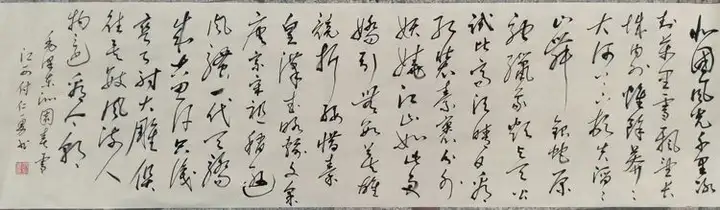 北國风光千里冰
封萬里雪飘望长
城内外惟馀莽々
大河上下顿失滔々
山舞银蛇原
驰蠟象欲与天公
试比高须晴日看
红装素裹分外
妖娆江山如此多
嬌引無数英雄
竞折腰惜秦
皇漢武略输文采
唐宗宋祖稍逊
风骚一代天骄
成吉思汗只识
弯弓射大雕俱
往矣数风流人
物还看今朝
毛泽东沁园春雪
付仁